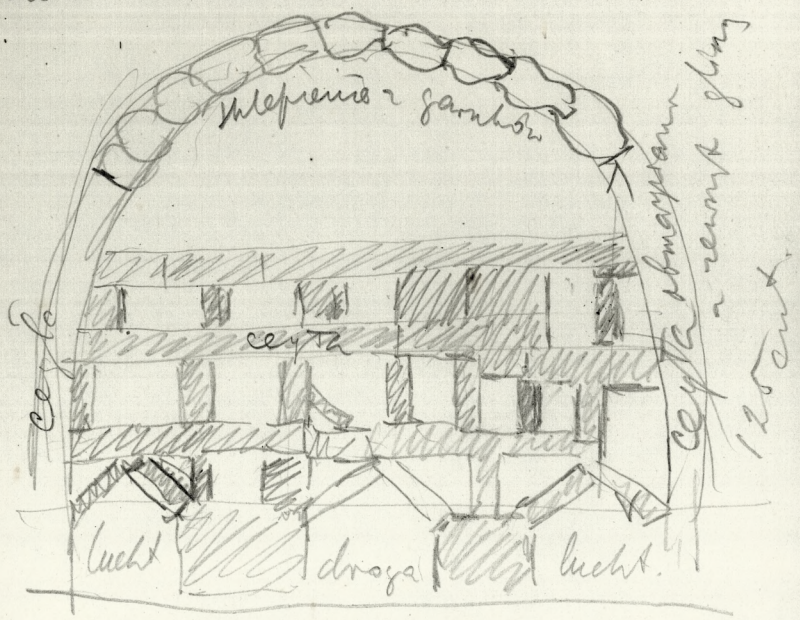 sklepienie z garnków
cegła
cegła
cegła obmazana
z zewnątrz gliną
120 cnt.
lucht
droga
lucht.